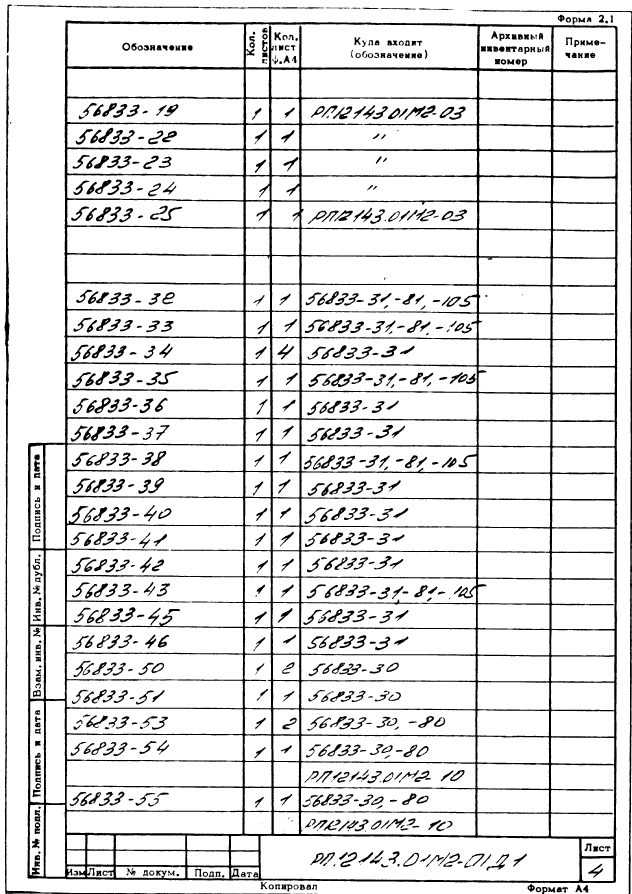 Форма 2.1
Обозначение Кол. листов Кол. лист ф.А4 Куда входит (обозначение) Архивный инвентарный номер Приме-чание
56833-19 1 1 РП12143.01М2-03
56833-22 1 1 "
56833-23 1 1 "
56833-24 1 1 "
56833-25 1 1 РП12143.01М2-03
56833-32 1 1 56833-31,-81,-105
56833-33 1 1 56833-31,-81,-105
56833-34 1 4 56833-31
56833-35 1 1 56833-31,-81,-105
56833-36 1 1 56833-31
56833-37 1 1 56833-31
56833-38 1 1 56833-31,-81,-105
56833-39 1 1 56833-31
56833-40 1 1 56833-31
56833-41 1 1 56833-31
56833-42 1 1 56833-31
56833-43 1 1 56833-31-81-105
56833-45 1 1 56833-31
56833-46 1 1 56833-31
56833-50 1 2 56833-30
56833-51 1 1 56833-30
56833-53 1 2 56833-30,-80
56833-54 1 1 56833-30,-80
РП12143.01М2-10
56833-55 1 1 56833-30,-80
РП12143.01М2-10
Подпись и дата
Инв. № дубл.
Взам. инв. №
Подпись и дата
Инв. № подл.
Изм Лист № докум. Подп. Дата
РП.12143.01М2-01Д1
Лист
4
Копировал
Формат А4